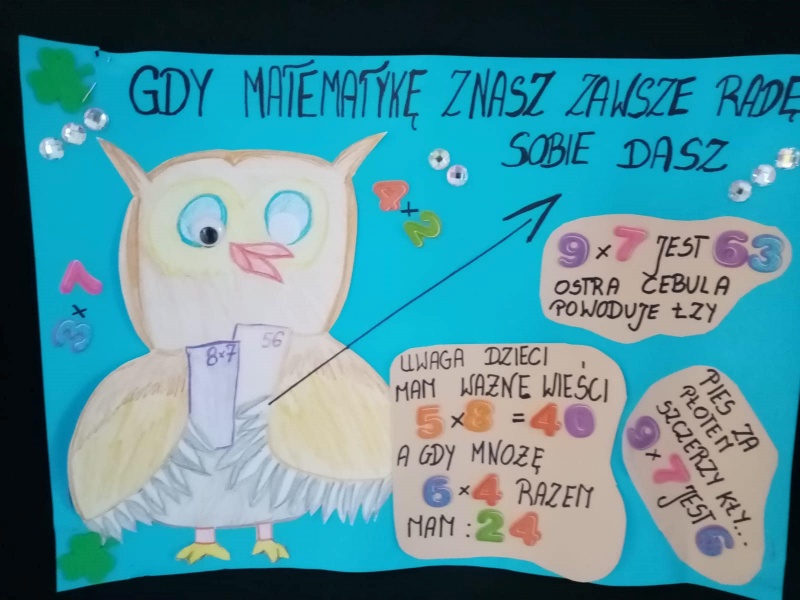 GDY MATEMATYKĘ ZNASZ ZAWSZE RADĘ
SOBIE DASZ
+
2
×
3
8×7
56
9 × 7 JEST 63
OSTRA CEBULA
POWODUJE ŁZY
UWAGA DZIECI
MAM WAŻNE WIEŚCI
5 × 8 = 40
A GDY MNOŻĘ
6 × 4 RAZEM
MAM : 24
PIES ZA
PŁOTEM
SZCZERZY KŁY...
9 × 7 JEST 6